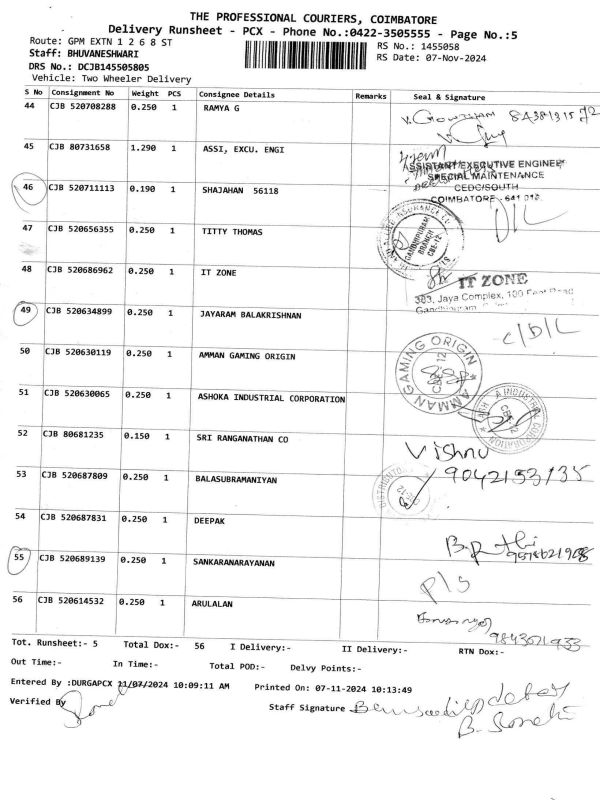 THE PROFESSIONAL COURIERS, COIMBATORE
Delivery Runsheet - PCX - Phone No.:0422-3505555 - Page No.:5
Route: GPM EXTN 1 2 6 8 ST
RS No.: 1455058
Staff: BHUVANESHWARI
RS Date: 07-Nov-2024
DRS No.: DCJB145505805
Vehicle: Two Wheeler Delivery
S No Consignment No Weight PCS Consignee Details Remarks Seal & Signature
44 CJB 520708288 0.250 1 RAMYA G
45 CJB 80731658 1.290 1 ASSI, EXCU. ENGI
ASSISTANT EXECUTIVE ENGINEER
SPECIAL MAINTENANCE
CEDC/SOUTH
COIMBATORE - 641 012
46 CJB 520711113 0.190 1 SHAJAHAN 56118
D/L
47 CJB 520656355 0.250 1 TITTY THOMAS
GANDHIPURAM
BRANCH
CBE-12
48 CJB 520686962 0.250 1 IT ZONE
IT ZONE
303, Jaya Complex, 100 Feet Road
49 CJB 520634899 0.250 1 JAYARAM BALAKRISHNAN
C/D/L
50 CJB 520630119 0.250 1 AMMAN GAMING ORIGIN
AMMAN GAMING ORIGIN
CBE-12
51 CJB 520630065 0.250 1 ASHOKA INDUSTRIAL CORPORATION
52 CJB 80681235 0.150 1 SRI RANGANATHAN CO
Vishnu
9042153135
53 CJB 520687809 0.250 1 BALASUBRAMANIYAN
54 CJB 520687831 0.250 1 DEEPAK
55 CJB 520689139 0.250 1 SANKARANARAYANAN
P/S
56 CJB 520614532 0.250 1 ARULALAN
Tot. Runsheet:- 5 Total Dox:- 56 I Delivery:- II Delivery:- RTN Dox:-
Out Time:- In Time:- Total POD:- Delvy Points:-
Entered By :DURGAPCX 11/07/2024 10:09:11 AM Printed On: 07-11-2024 10:13:49
Verified By Staff Signature